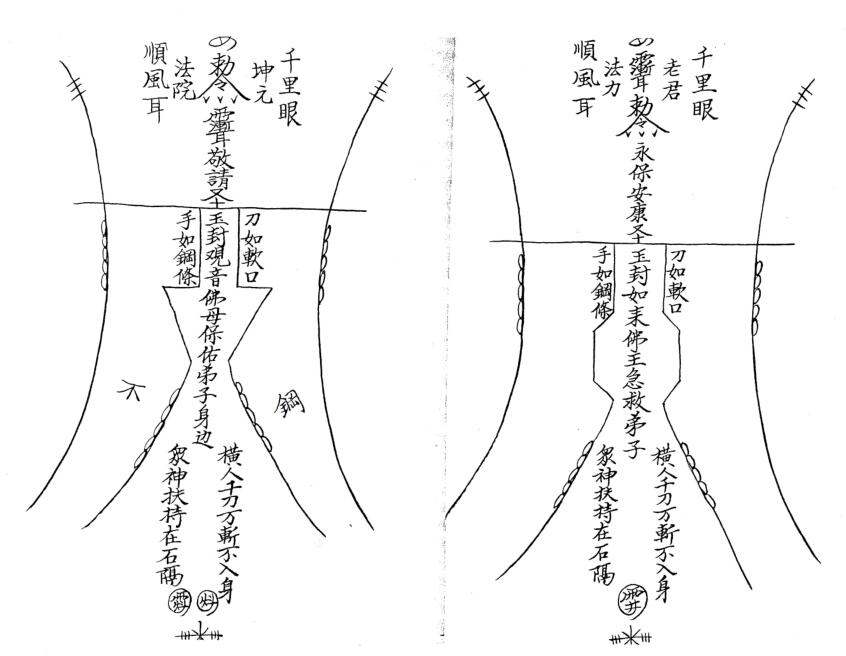 千里眼
老君
勅令
永保安康
法力
順風耳
刀如軟口
玉封如来佛主急救弟子
手如鋼條
橫人千刀万斬不入身
眾神扶持在石隔
千里眼
坤元
勅令
敬請
法院
順風耳
刀如軟口
玉封观音佛母保佑弟子身边
手如鋼條
鋼
不
橫人千刀万斬不入身
眾神扶持在石隔